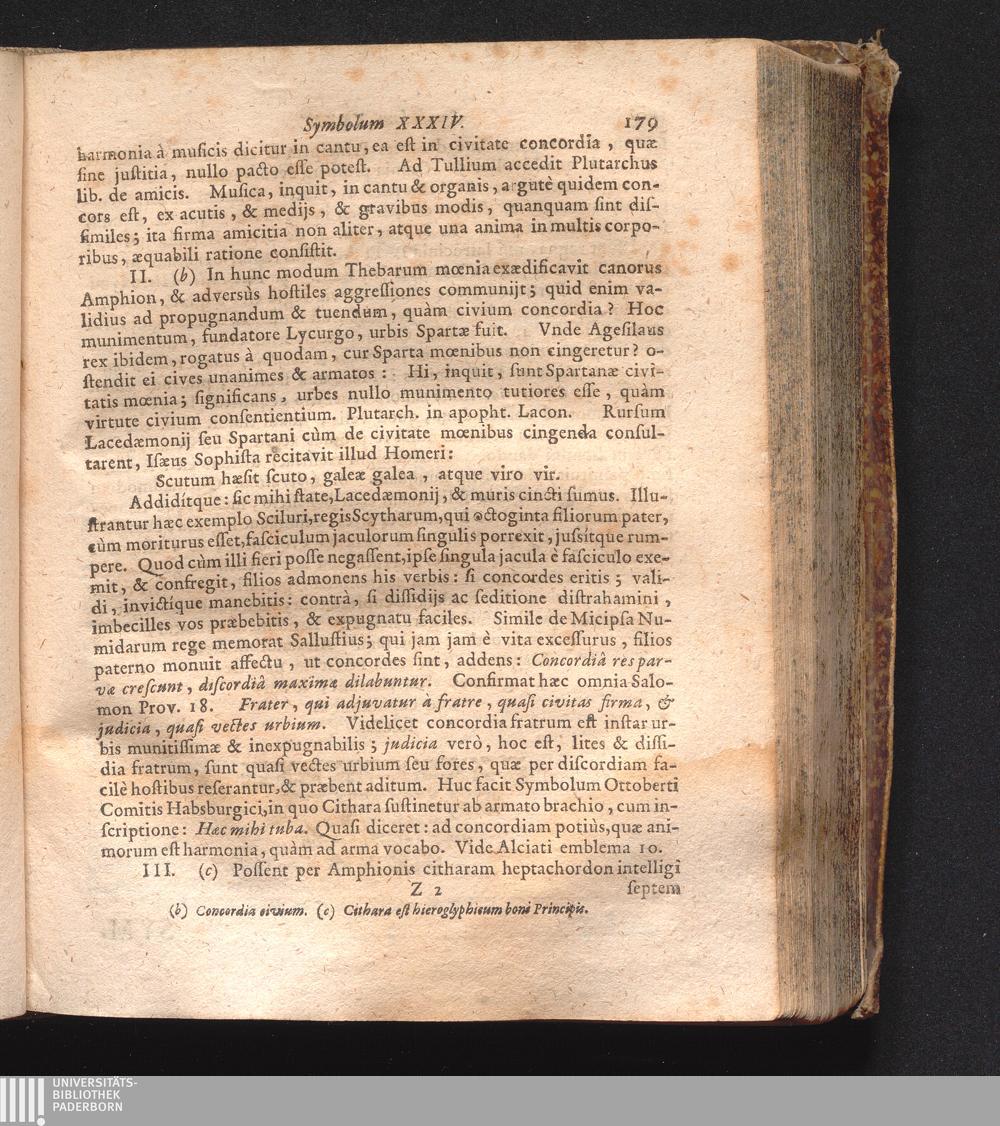 Symbolum XXXIV. 179
harmonia à musicis dicitur in cantu, ea est in civitate concordia, quæ
sine justitia, nullo pacto esse potest. Ad Tullium accedit Plutarchus
lib. de amicis. Musica, inquit, in cantu & organis, argutè quidem con-
cors est, ex acutis, & medijs, & gravibus modis, quanquam sint dis-
similes; ita firma amicitia non aliter, atque una anima in multis corpo-
ribus, æquabili ratione consistit.
II. (b) In hunc modum Thebarum mœnia exædificavit canorus
Amphion, & adversùs hostiles aggressiones communijt; quid enim va-
lidius ad propugnandum & tuendum, quàm civium concordia? Hoc
munimentum, fundatore Lycurgo, urbis Spartæ fuit. Vnde Agesilaus
rex ibidem, rogatus à quodam, cur Sparta mœnibus non cingeretur? o-
stendit ei cives unanimes & armatos: Hi, inquit, sunt Spartanæ civi-
tatis mœnia; significans, urbes nullo munimento tutiores esse, quàm
virtute civium consentientium. Plutarch. in apopht. Lacon. Rursum
Lacedæmonij seu Spartani cùm de civitate mœnibus cingenda consul-
tarent, Isæus Sophista recitavit illud Homeri:
Scutum hæsit scuto, galeæ galea, atque viro vir.
Addidítque: sic mihi state, Lacedæmonij, & muris cincti sumus. Illu-
strantur hæc exemplo Sciluri, regis Scytharum, qui octoginta filiorum pater,
cùm moriturus esset, fasciculum jaculorum singulis porrexit, jussítque rum-
pere. Quod cùm illi fieri posse negassent, ipse singula jacula è fasciculo exe-
mit, & confregit, filios admonens his verbis: si concordes eritis; vali-
di, invictíque manebitis: contrà, si dissidijs ac seditione distrahamini,
imbecilles vos præbebitis, & expugnatu faciles. Simile de Micipsa Nu-
midarum rege memorat Sallustius; qui jam jam è vita excessurus, filios
paterno monuit affectu, ut concordes sint, addens: Concordiâ res par-
væ crescunt, discordiâ maximæ dilabuntur. Confirmat hæc omnia Salo-
mon Prov. 18. Frater, qui adjuvatur à fratre, quasi civitas firma, &
judicia, quasi vectes urbium. Videlicet concordia fratrum est instar ur-
bis munitissimæ & inexpugnabilis; judicia verò, hoc est, lites & dissi-
dia fratrum, sunt quasi vectes urbium seu fores, quæ per discordiam fa-
cilè hostibus reserantur, & præbent aditum. Huc facit Symbolum Ottoberti
Comitis Habsburgici, in quo Cithara sustinetur ab armato brachio, cum in-
scriptione: Hæc mihi tuba. Quasi diceret: ad concordiam potiùs, quæ ani-
morum est harmonia, quàm ad arma vocabo. Vide Alciati emblema 10.
III. (c) Possent per Amphionis citharam heptachordon intelligi
Z 2 septem
(b) Concordia civium. (c) Cithara est hieroglyphicum boni Principis.
UNIVERSITÄTS-
BIBLIOTHEK
PADERBORN